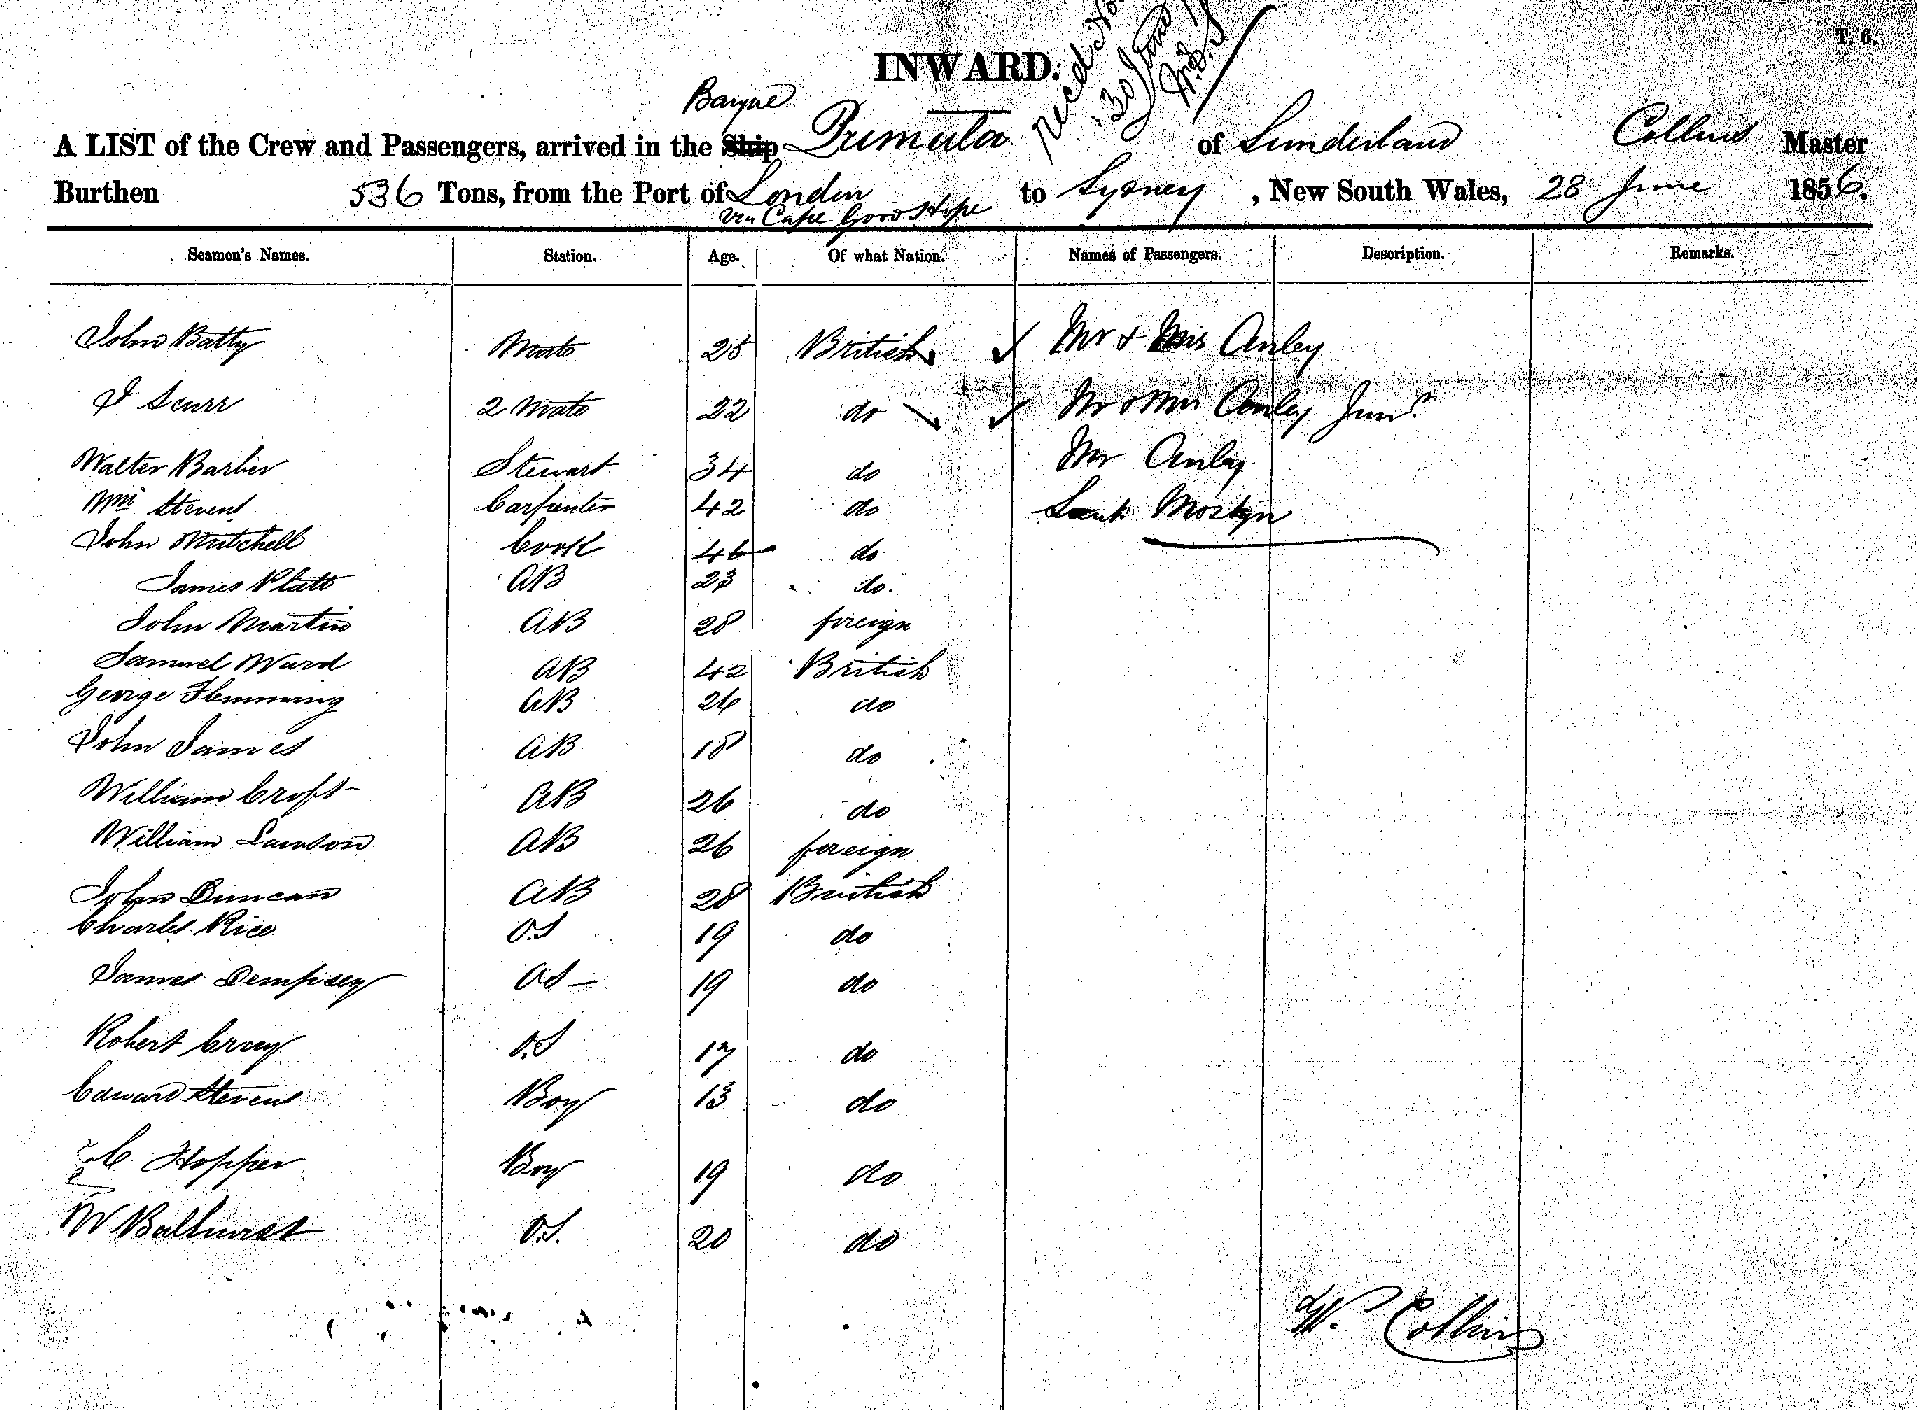 T. 6.
INWARD.
Recd
30 June
Barque
A LIST of the Crew and Passengers, arrived in the Ship Primula of Sunderland Collins Master
Burthen 536 Tons, from the Port of London to Sydney, New South Wales, 28 June 1856.
via Cape Good Hope
Seamen's Names. Station. Age. Of what Nation. Names of Passengers. Description. Remarks.
John Batty Mate 28 British Mr & Mrs Anley
J Scurr 2 Mate 22 do Mr & Mrs Anley Junr
Walter Barber Stewart 34 do Mr Anley
Wm Stevens Carpenter 42 do Mostyn
John Mitchell Cook 46 do
James Platt AB 23 do.
John Martin AB 28 foreign
Samuel Ward AB 42 British
George Flemming AB 26 do
John James AB 18 do
William Croft AB 26 do
William Lawson AB 26 foreign
John Duncan AB 28 British
Charles Rice O.S 19 do
James Dempsey OS 19 do
Robert O.S 17 do
Edward Stevens Boy 13 do
C Hopper Boy 19 do
W Bathurst O.S. 20 do
W. Collins